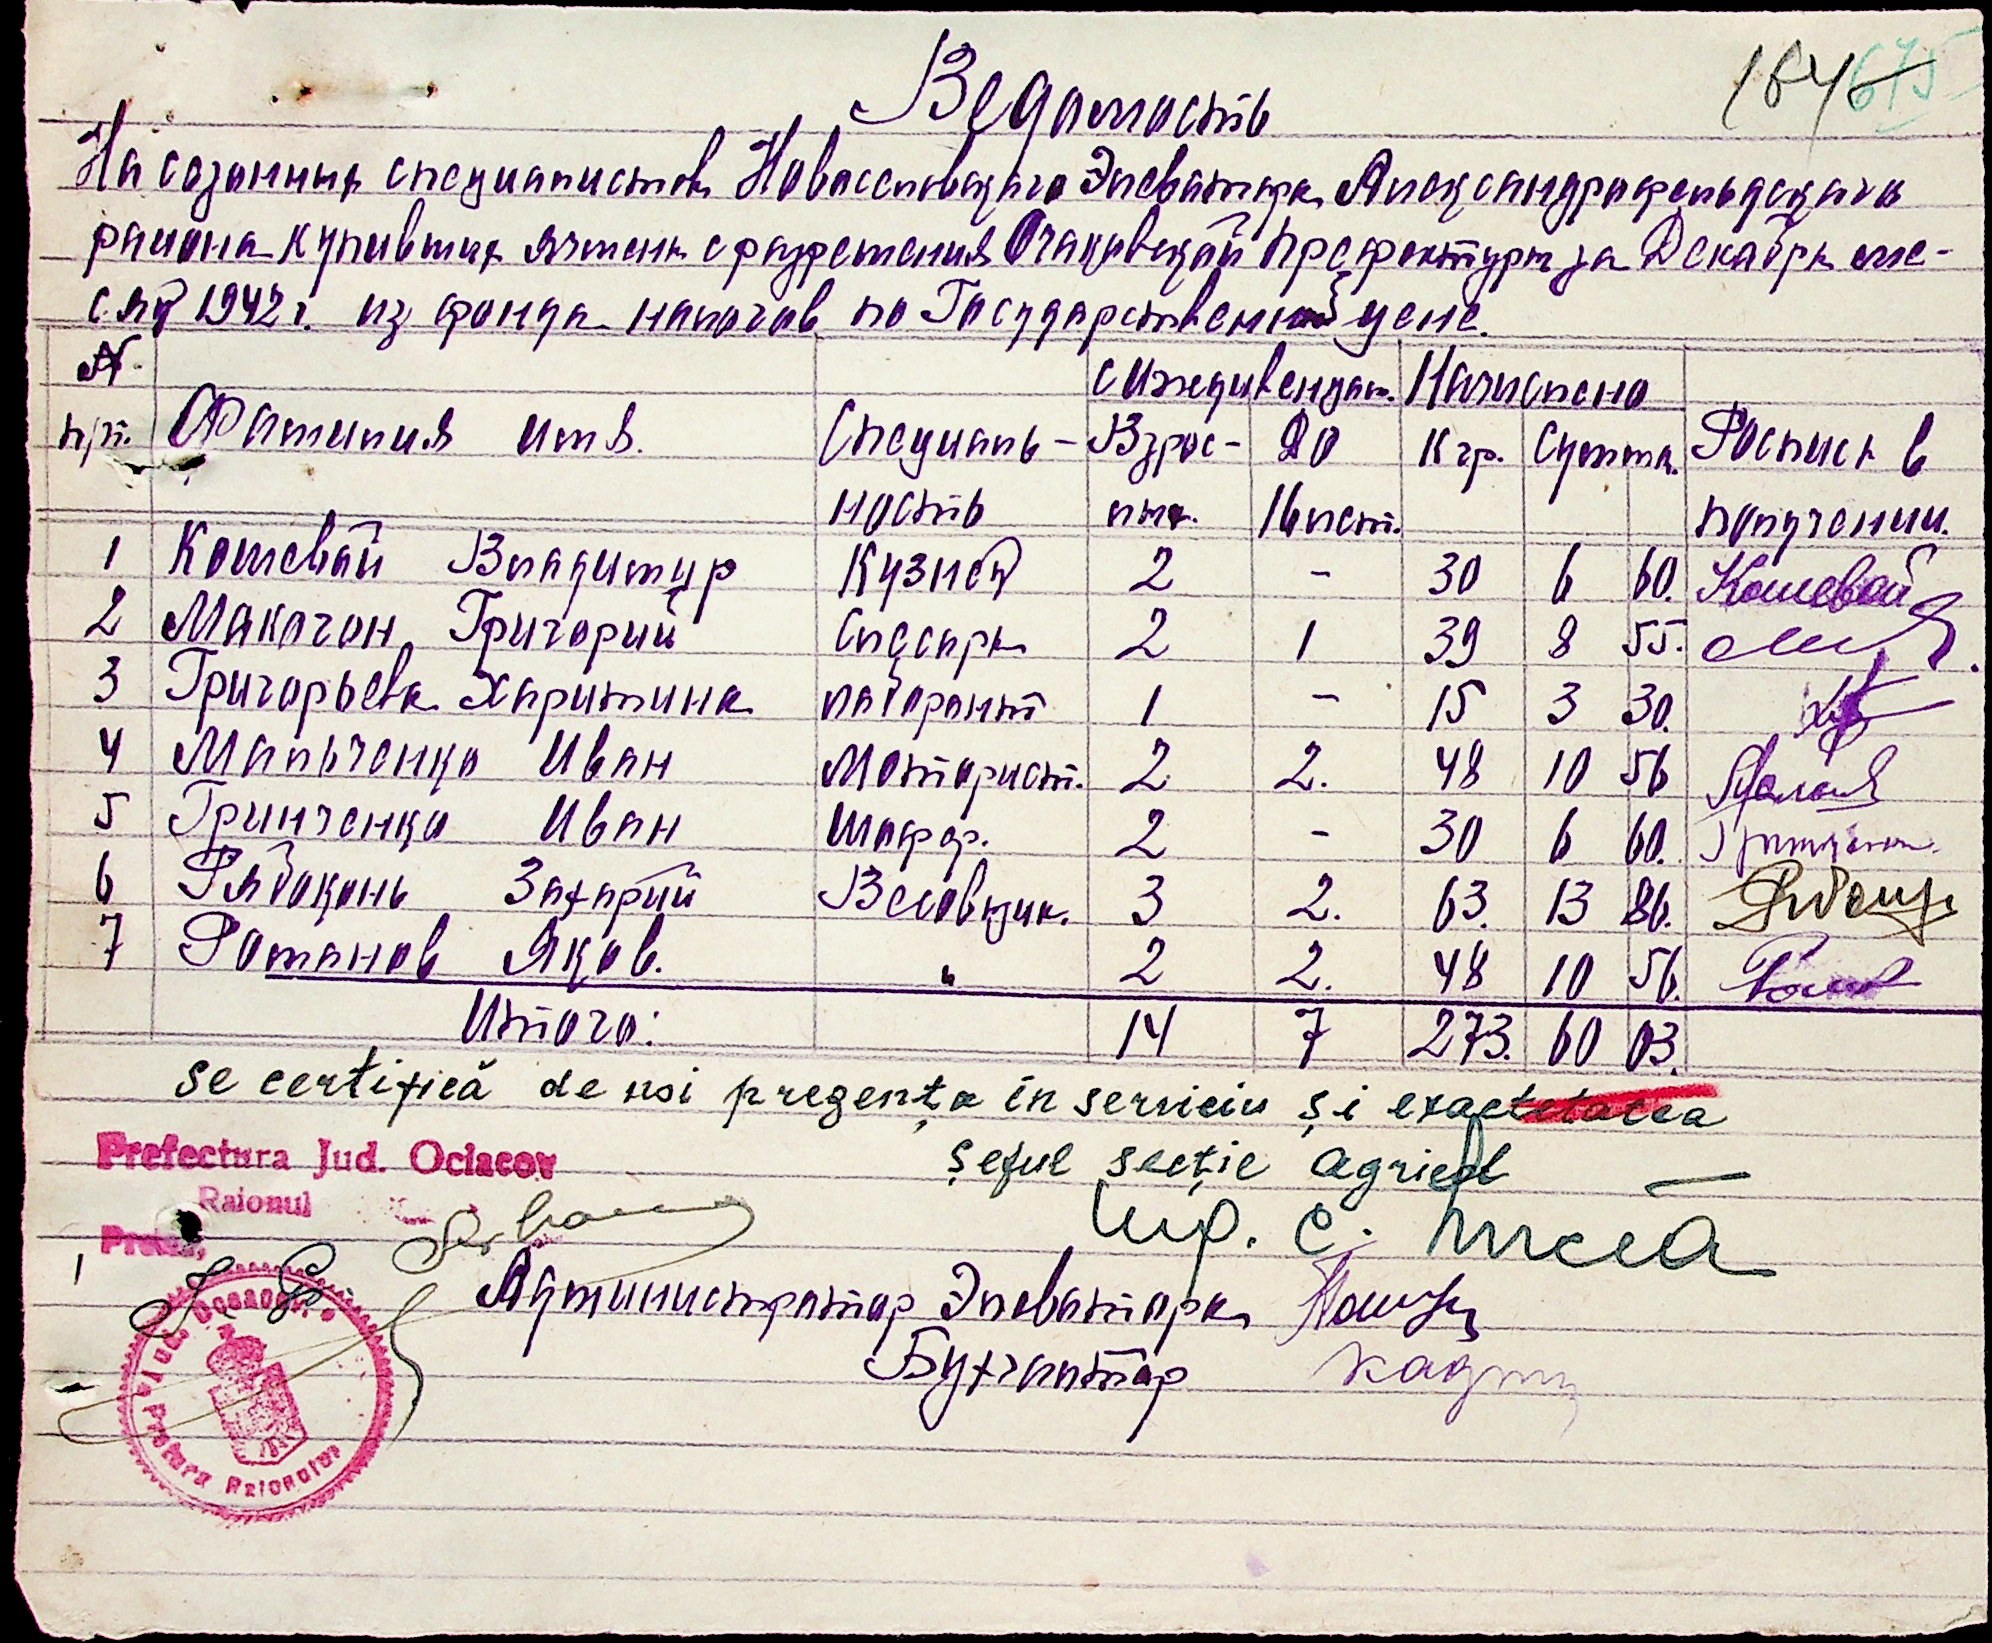 Ведомость
184 675
На сезонных специалистов Новоселовского Элеватора Александрофельдского
района купивших ячмень с разрешения Очаковской Префектуры за Декабрь ме-
сяц 1942 г. из фонда налогов по Государственной цене.
№ п/п. Фамилия имя. Специаль-ность с иждивендат. Взрос-лых. До 16 лет. Начислено Кгр. Сумма. Росписк в получении.
1 Кошевой Владимир Кузнец 2 - 30 6 60. Кошевой
2 Макогон Григорий Слесарь 2 1 39 8 55.
3 Григорьева Харитина лаборант 1 - 15 3 30.
4 Мальченко Иван Моторист. 2 2. 48 10 56
5 Гринченко Иван Шофер. 2 - 30 6 60.
6 Рябоконь Захарий Весовщик. 3 2. 63. 13 86.
7 Романов Яков. " 2 2. 48 10 56.
Итого: 14 7 273. 60 03.
se certifică de noi prezența în serviciu și exactetatea
Prefectura Jud. Ociacov
șeful secție agricol
Raionul
C. Mircea
Администратор Элеватора
Бухгалтер
Pretura Raionului